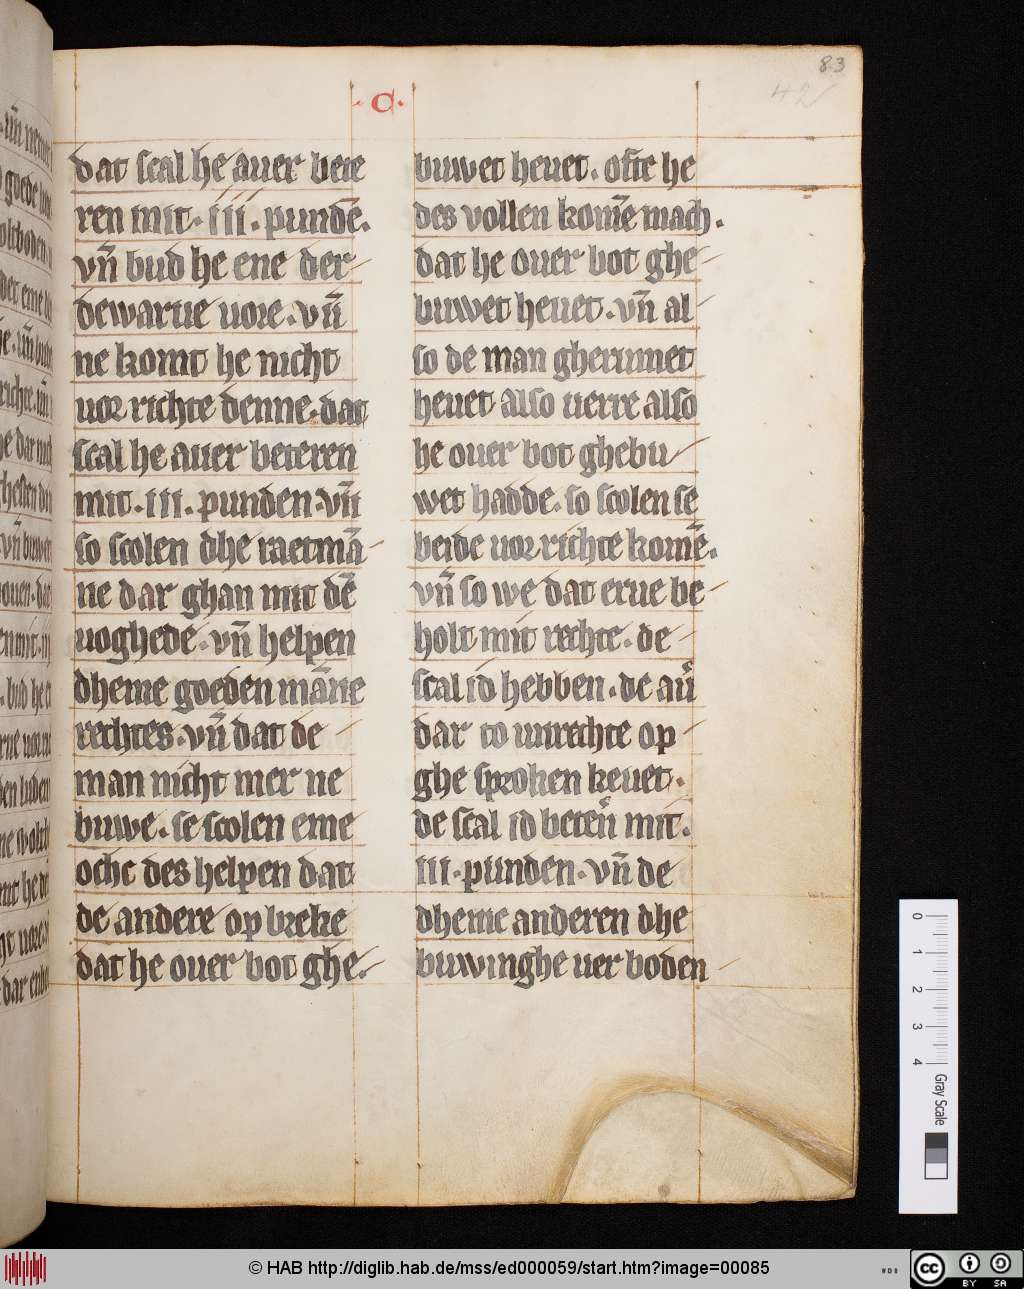 83
42
.C.
dat scal he auer bete
ren mit · iii · pundē.
vn̄ bud he ene der
dewarue uore · vn̄
ne komt he nicht
uor richte denne · dat
scal he auer beteren
mit · iii · punden · vn̄
so scolen dhe raetmā
ne dar ghan mit dē
uoghede · vn̄ helpen
dheme goeden māne
rechtes · vn̄ dat de
man nicht mer ne
buwe · se scolen eme
och des helpen dat
de andere op breke
dat he ouer bot ghe.
buwet heuet · ofte he
des vollen kom̄e mach.
dat he ouer bot ghe
buwet heuet · vn̄ al
so de man gherumet
heuet also uerre also
he ouer bot ghebu
wet hadde · so scolen se
beide uor richte kom̄e.
vn̄ so we dat erue be
holt mit rechte · de
scal id hebben · de au̓
dar to unrechte op
ghe sproken heuet ·
de scal id beten̓ mit.
iii · punden · vn̄ de
dheme anderen dhe
buwinghe uer boden
0 1 2 3 4 Gray Scale
© HAB http://diglib.hab.de/mss/ed000059/start.htm?image=00085
WDB
cc BY SA